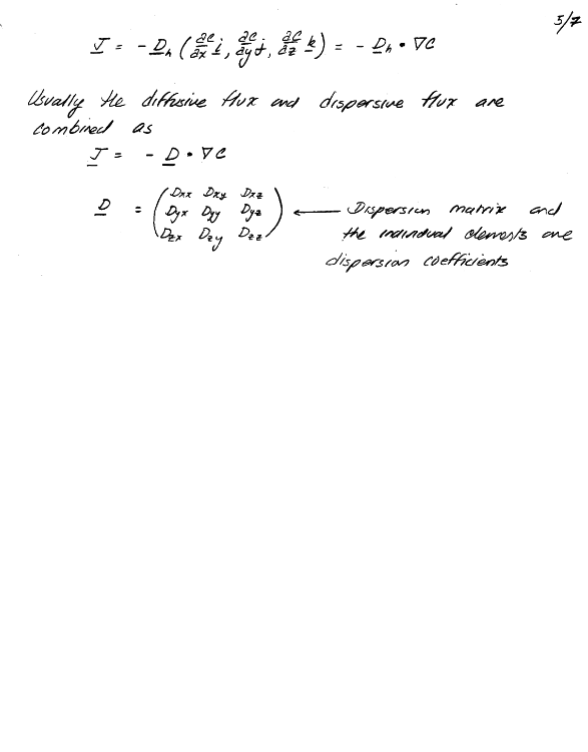 5/7
J = - D_h (∂C/∂x i, ∂C/∂y j, ∂C/∂z k) = - D_h • ∇C
Usually the diffusive flux and dispersive flux are
combined as
J = - D • ∇C
D = (Dxx Dxy Dxz
Dyx Dyy Dyz
Dzx Dzy Dzz) ← Dispersion matrix and
the individual elements are
dispersion coefficients